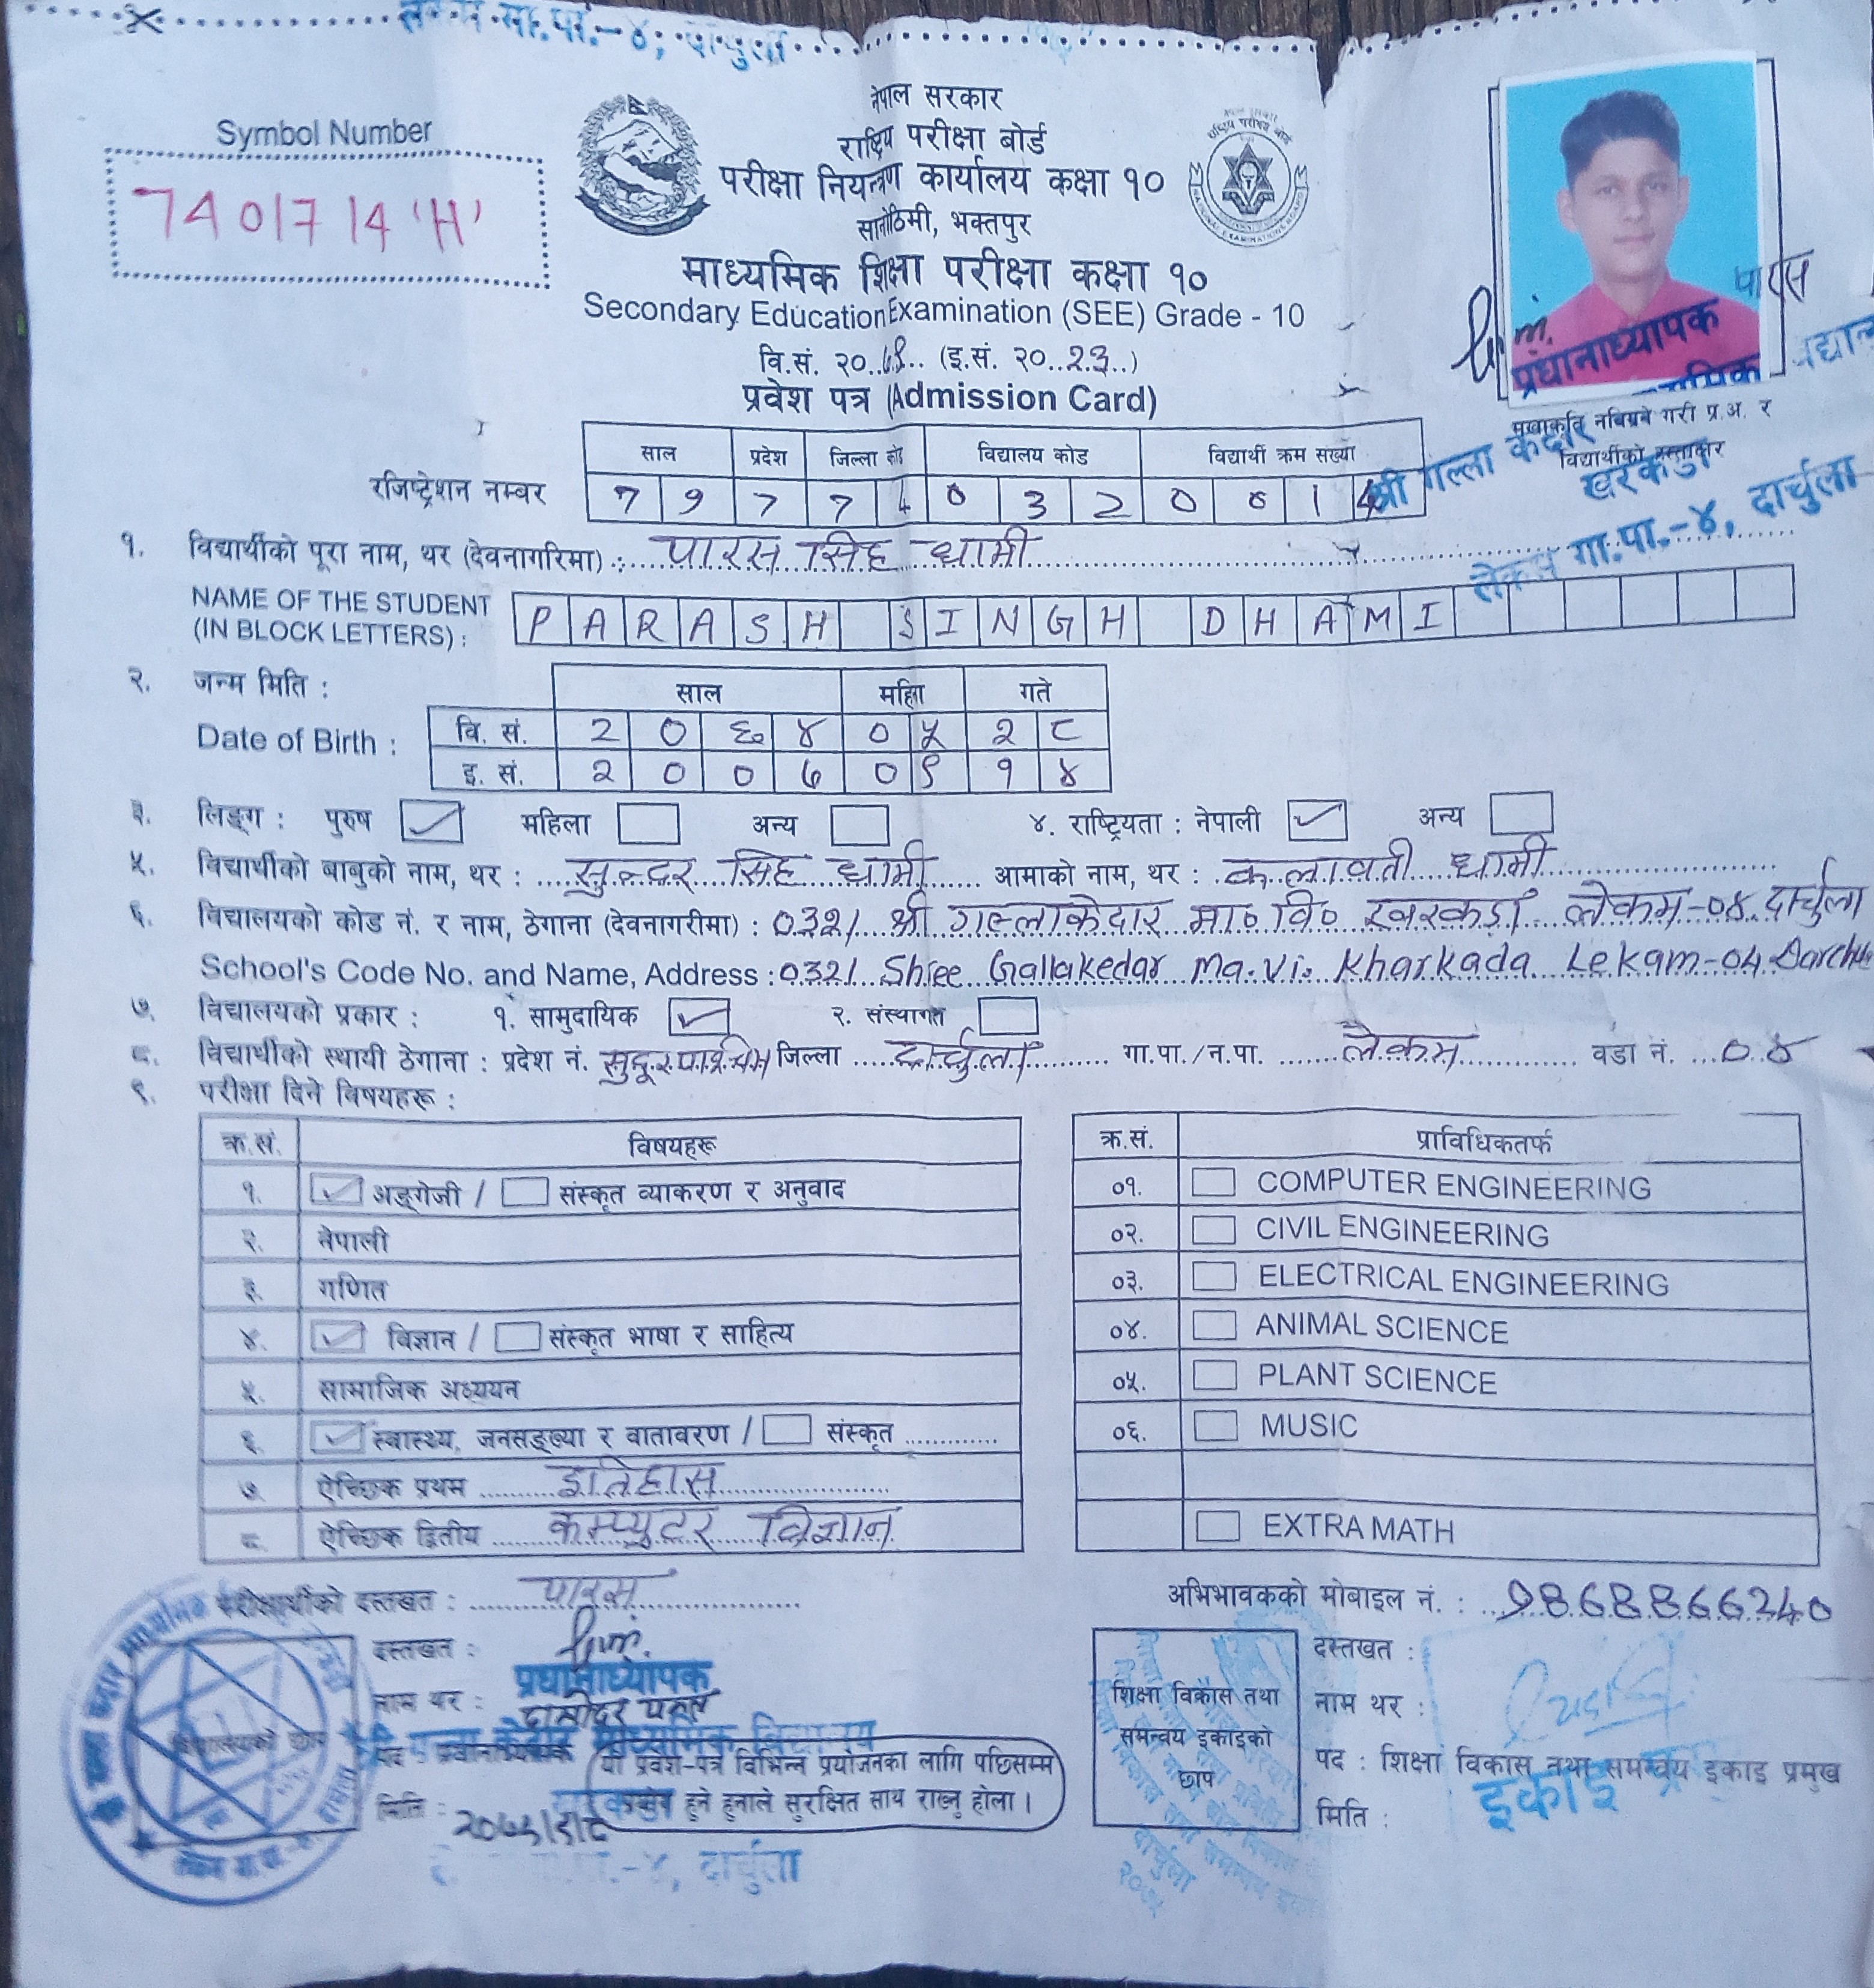 मा.पा.-४, दार्चुला
Symbol Number
7401714 'H'
नेपाल सरकार
राष्ट्रिय परीक्षा बोर्ड
परीक्षा नियन्त्रण कार्यालय कक्षा १०
सानोठिमी, भक्तपुर
माध्यमिक शिक्षा परीक्षा कक्षा १०
Secondary Education Examination (SEE) Grade - 10
वि.सं. २०..७९.. (इ.सं. २०..२३..)
प्रवेश पत्र (Admission Card)
पारस
प्रधानाध्यापक
मुखाकृति नबिग्रने गरी प्र.अ. र
विद्यार्थीको दस्तखत
श्री गल्ला केदार
खरकडा
लेकम गा.पा.-४, दार्चुला
साल प्रदेश जिल्ला कोड विद्यालय कोड विद्यार्थी क्रम संख्या
रजिष्ट्रेशन नम्बर 7 9 7 7 4 0 3 2 0 0 1 4
१. विद्यार्थीको पूरा नाम, थर (देवनागरिमा) : पारस सिंह धामी
NAME OF THE STUDENT
(IN BLOCK LETTERS) : PARASH SINGH DHAMI
२. जन्म मिति : साल महिना गते
Date of Birth : वि. सं. २ ० ६ ४ ० ५ २ ८
इ. सं. २ ० ० ७ ० ९ १ ४
३. लिङ्ग : पुरुष ✓ महिला अन्य ४. राष्ट्रियता : नेपाली ✓ अन्य
५. विद्यार्थीको बाबुको नाम, थर : सुन्दर सिंह धामी आमाको नाम, थर : कलावती धामी
६. विद्यालयको कोड नं. र नाम, ठेगाना (देवनागरीमा) : 0321 श्री गल्लाकेदार मा० वि० खरकडा लेकम-०४ दार्चुला
School's Code No. and Name, Address : 0321 Shree Gallakedar Ma.Vi. Kharkada Lekam-04 Darchula
७. विद्यालयको प्रकार : १. सामुदायिक ✓ २. संस्थागत
८. विद्यार्थीको स्थायी ठेगाना : प्रदेश नं. सुदूरपश्चिम जिल्ला दार्चुला गा.पा./न.पा. लेकम वडा नं. ०४
९. परीक्षा दिने विषयहरू :
क्र.सं. विषयहरू
१. ✓ अङ्ग्रेजी / संस्कृत व्याकरण र अनुवाद
२. नेपाली
३. गणित
४. ✓ विज्ञान / संस्कृत भाषा र साहित्य
५. सामाजिक अध्ययन
६. ✓ स्वास्थ्य, जनसङ्ख्या र वातावरण / संस्कृत
७. ऐच्छिक प्रथम इतिहास
८. ऐच्छिक द्वितीय कम्प्युटर विज्ञान
क्र.सं. प्राविधिकतर्फ
०१. COMPUTER ENGINEERING
०२. CIVIL ENGINEERING
०३. ELECTRICAL ENGINEERING
०४. ANIMAL SCIENCE
०५. PLANT SCIENCE
०६. MUSIC
EXTRA MATH
परीक्षार्थीको दस्तखत : पारस
दस्तखत :
प्रधानाध्यापक
नाम थर : दामोदर
पद : प्रधानाध्यापक
मिति :
माध्यमिक विद्यालय
विद्यालयको छाप
यो प्रवेश-पत्र विभिन्न प्रयोजनका लागि पछिसम्म
हुने हुनाले सुरक्षित साथ राख्नु होला ।
-४, दार्चुला
अभिभावकको मोबाइल नं. : 9868866240
शिक्षा विकास तथा
समन्वय इकाइको
छाप
दस्तखत :
नाम थर :
पद : शिक्षा विकास तथा समन्वय इकाइ प्रमुख
इकाई
मिति :